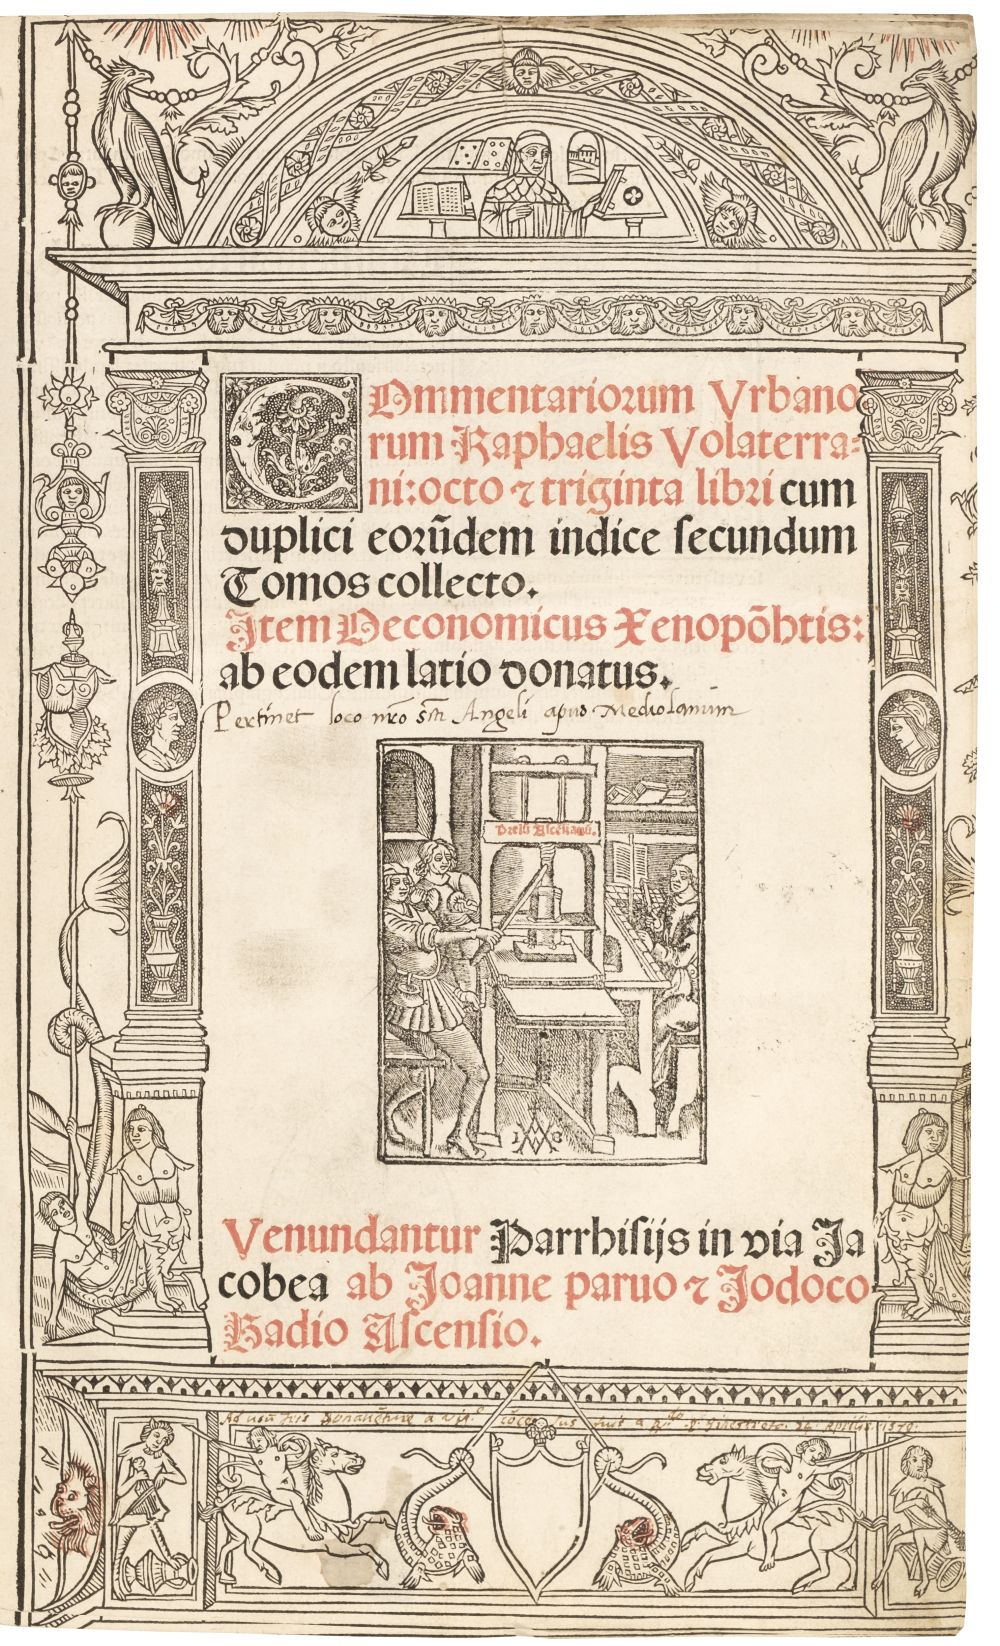 COmmentariorum Vrbano
rum Raphaelis Volaterra-
ni: octo ⁊ triginta libri cum
duplici eorũdem indice ſecundum
Tomos collecto.
Item Oeconomicus Xenopõhtis:
ab eodem latio donatus.
Pertinet loco nr̃o Angeli apud Mediolanum
Prelũ Aſcẽſianũ.
Venundantur Parrhiſijs in via Ja
cobea ab Joanne paruo ⁊ Jodoco
Badio Aſcenſio.
Ad usũ a 1579.